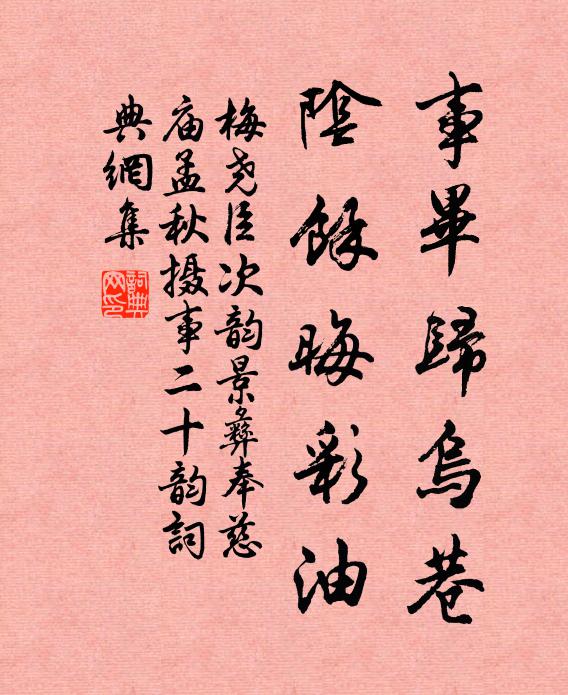 事畢歸烏巷
陰餘晦彩油
梅尧臣次韵景彝奉慈
庙孟秋摄事二十韵詞
典網集
詞典网印